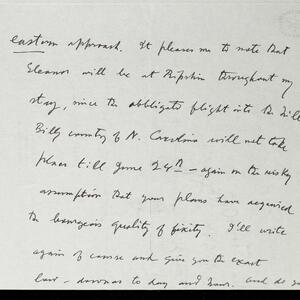 eastern approach. It pleases me to note that
Eleanor will be at Ripshin throughout my
stay, since the obbligato flight into the Hill
Billy country of N. Carolina will not take
place till June 24th – again on the risky
assumption that your plans have acquired
the bourgeois quality of fixity. I'll write
again of course and give you the exact
low-down as to day and hour. And do